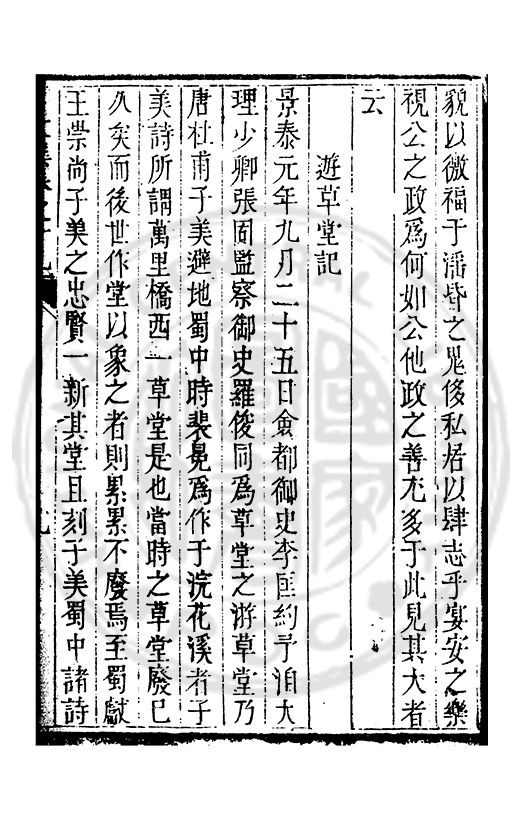 貌以徼福于潘昏之鬼侈私居以肆志乎宴安之樂
視公之政為何如公他政之善尤多于此見其大者
云
遊草堂記
景泰元年九月二十五日僉都御史李匡約予洎大
理少卿張固監察御史羅俊同為草堂之游草堂乃
唐杜甫子美避地蜀中時裴冕為作于浣花溪者子
美詩所謂萬里橋西一草堂是也當時之草堂廢已
久矣而後世作堂以象之者則累累不廢焉至蜀獻
王崇尚子美之忠賢一新其堂且刻子美蜀中諸詩